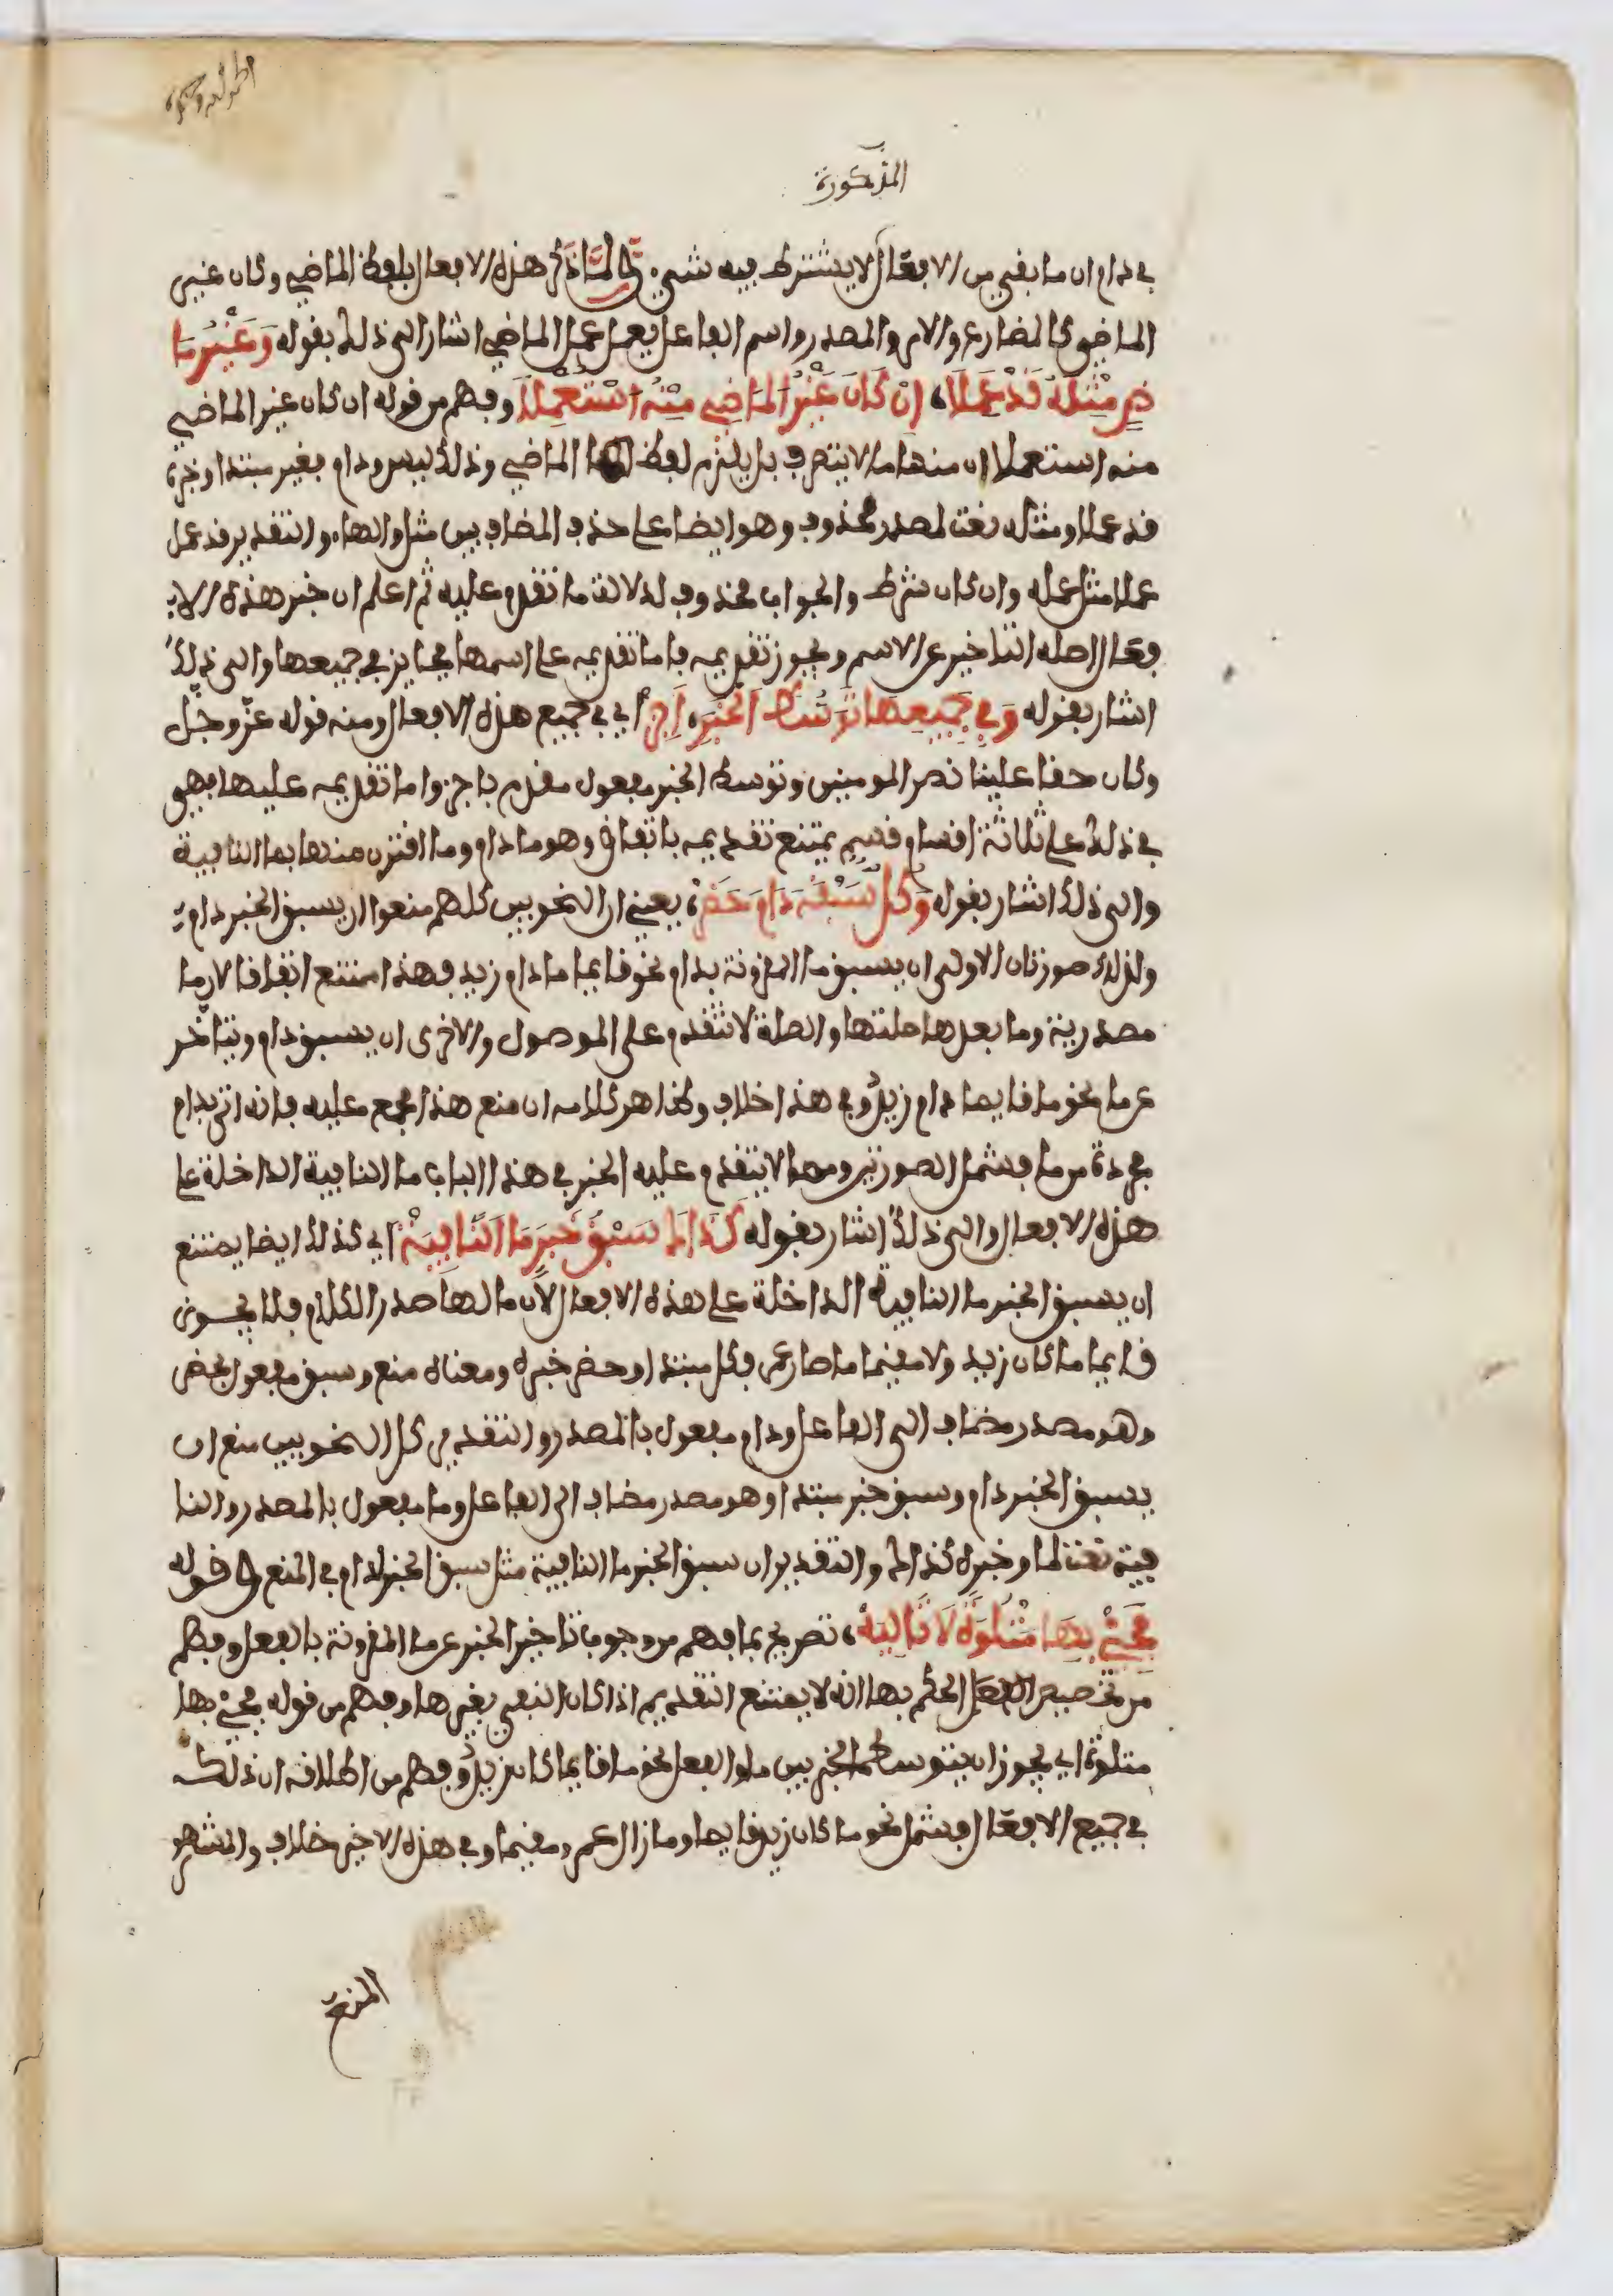 المذكورة
في دام ان ما بقي من الافعال لا يشترط فيه شيء ولما ذكر هذه الافعال بلفظ الماضي وكان غير
الماضي كالمضارع والامر والمصدر واسم الفاعل يعمل عمل الماضي اشار الى ذلك بقوله وَغَيْرُ مَا
ضٍ مِثْلَهُ قَدْ عَمِلَا، إِنْ كَانَ غَيْرُ المَاضِي مِنْهُ اسْتُعْمِلَا وفهم من قوله ان كان غير الماضي
منه استعملا ان منها ما لا يتصرف بل يلزم لفظ الماضي وذلك ليس ودام فغير مبتدا وخبره
قد عملا ومثله نعت لمصدر محذوف وهو ايضا على حذف المضاف بين مثل والهاء والتقدير قد عمل
عملا مثل عمله وان كان شرط والجواب محذوف لدلالة ما تقدم عليه ثم اعلم ان خبر هذه الا
فعال اصله التاخير عن الاسم ويجوز تقديمه فاما تقديمه على اسمها فجايز في جميعها والى ذلك
اشار بقوله وَفِي جَمِيعِهَا تَوَسُّطَ الخَبَرْ، أَجِزْ اي في جميع هذه الافعال ومنه قوله عزّ وجلّ
وكان حقا علينا نصر المومنين وتوسط الخبر مفعول مقدم باجز واما تقديمه عليها فهو
في ذلك على ثلاثة اقسام قسم يمتنع تقديمه باتفاق وهو ما دام وما اقترن منها بما النافية
والى ذلك اشار بقوله وَكُلٌّ سَبْقَهُ دَامَ حَظَرْ، يعني ان النحويين كلهم منعوا ان يسبق الخبر دام
ولذلك صورتان الاولى ان يسبق ما المقرونة بدام نحو قايما ما دام زيد فهذا ممتنع اتفاقا لان ما
مصدرية وما بعدها صلتها والصلة لا تتقدم على الموصول والاخرى ان يسبق دام ويتاخر
عن ما نحو ما قايما دام زيد وفي هذا خلاف وظاهر كلامه ان منع هذا مجمع عليه فانه اتى بدام
مجردة من ما فشمل الصورتين ومما لا يتقدم عليه الخبر في هذا الباب ما النافية الداخلة على
هذه الافعال والى ذلك اشار بقوله كَذَاكَ سَبْقُ خَبَرٍ مَا النَّافِيَهْ اي كذلك ايضا يمتنع
ان يسبق الخبر ما النافية الداخلة على هذه الافعال لان ما لها صدر الكلام فلا يجوز
قايما ما كان زيد ولا مقيما ما صار عمر وكل مبتدا وحظر خبره ومعناه منع وسبق مفعول بحظر
وهو مصدر مضاف الى الفاعل ودام مفعول بالمصدر والتقدير كل النحويين منع ان
يسبق الخبر دام وسبق خبر مبتدا وهو مصدر مضاف الى الفاعل وما مفعول بالمصدر والنا
فية نعت لما وخبره كذاك والتقدير ان سبق الخبر ما النافية مثل سبق الخبر لدام في المنع وقوله
فَجِئْ بِهَا مَتْلُوَّةً لَا تَالِيَهْ، تصريح بما فهم من وجوب تاخير الخبر عن ما المقرونة بالفعل وفهم
من تخصيص الحكم بها انه لا يمتنع التقديم اذا كان النفي بغيرها وفهم من قوله فجئ بها
متلوة اي يجوز ان يتوسط الخبر بين ما والفعل نحو ما قايما كان زيد وفهم من اطلاقه ان ذلك
في جميع الافعال فشمل نحو ما كان زيد قايما وما زال عمرو مقيما وفي هذه الاخيرة خلاف والمشهور
المنع